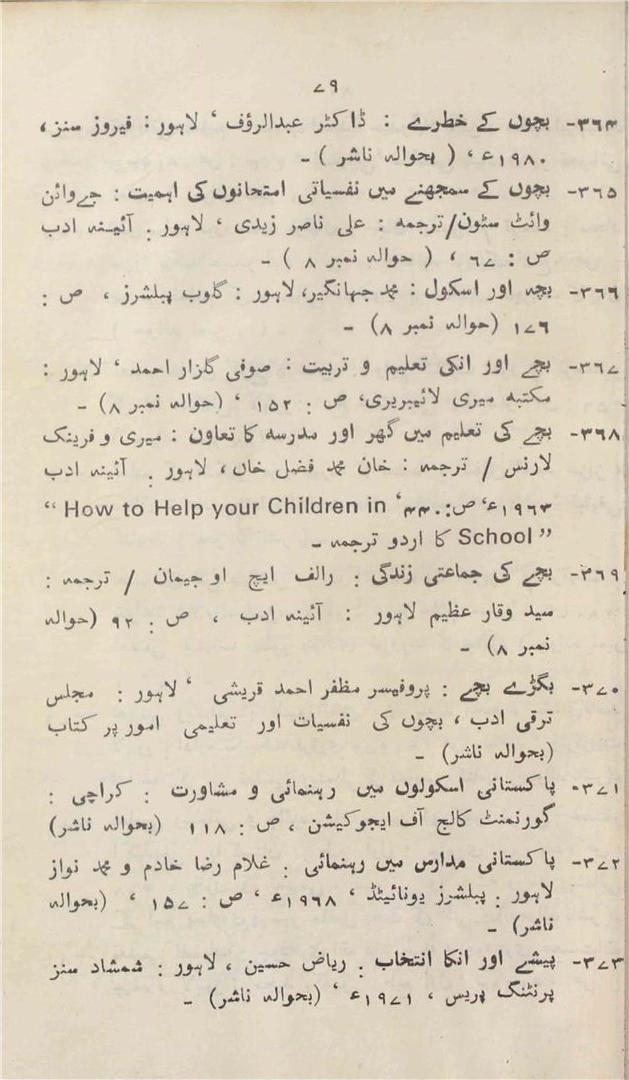 ۷۹
۳۶۴- بچوں کے خطرے : ڈاکٹر عبدالرؤف ‘ لاہور : فیروز سنز ،
۱۹۸۰ء ‘ ( بحوالہ ناشر ) -
۳۶۵- بچوں کے سمجھنے میں نفسیاتی امتحانوں کی اہمیت : جے وائن
وائٹ سٹون/ترجمہ : علی ناصر زیدی ‘ لاہور : آئینہ ادب
ص : ۶۷ ‘ ( حوالہ نمبر ۸ ) -
۳۶۶- بچہ اور اسکول : محمد جہانگیر، لاہور : گلوب پبلشرز ، ص :
۱۷۶ (حوالہ نمبر ۸) -
۳۶۷- بچے اور انکی تعلیم و تربیت : صوفی گلزار احمد ‘ لاہور :
مکتبہ میری لائیبریری، ص : ۱۵۲ ‘ (حوالہ نمبر ۸) -
۳۶۸- بچے کی تعلیم میں گھر اور مدرسہ کا تعاون : میری و فرینک
لارنس / ترجمہ : خان محمد فضل خاں ، لاہور : آئینہ ادب
۱۹۶۳ء‘ ص : ۳۳۰ ‘ “ How to Help your Children in
School ” کا اردو ترجمہ -
۳۶۹- بچے کی جماعتی زندگی : رالف ایچ او جیمان / ترجمہ :
سید وقار عظیم لاہور : آئینہ ادب ، ص : ۹۲ (حوالہ
نمبر ۸) -
۳۷۰- بگڑے بچے : پروفیسر مظفر احمد قریشی ‘ لاہور : مجلس
ترقی ادب ، بچوں کی نفسیات اور تعلیمی امور پر کتاب
(بحوالہ ناشر) -
۳۷۱- پاکستانی اسکولوں میں رہنمائی و مشاورت : کراچی :
گورنمنٹ کالج آف ایجوکیشن ، ص : ۱۱۸ (بحوالہ ناشر)
۳۷۲- پاکستانی مدارس میں رہنمائی : غلام رضا خادم و محمد نواز
لاہور : پبلشرز یونائیٹڈ ‘ ۱۹۶۸ء ‘ ص : ۱۵۷ ‘ (بحوالہ
ناشر) -
۳۷۳- پیشے اور انکا انتخاب : ریاض حسین ، لاہور : شمشاد سنز
پرنٹنگ پریس ، ۱۹۷۱ء ‘ (بحوالہ ناشر) -